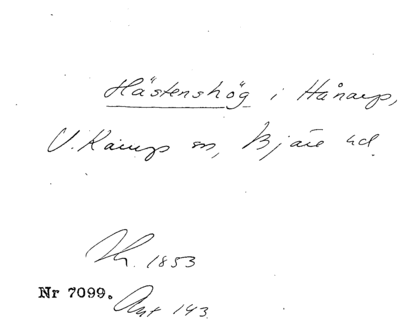 Hästenshög i Hånarp,
V. Karup sn, Bjäre hd.
Th. 1853
Nr 7099. Ant 143